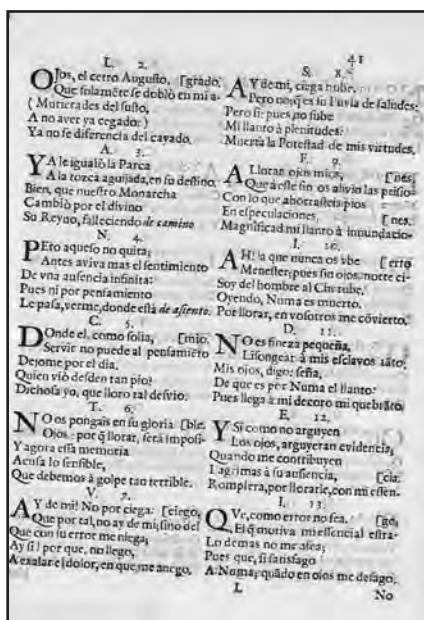 41
L. 2.
OJos, el cetro Augusto, [grado.
Que solamẽte se doblò en mi a-
( Muriérades del susto,
A no aver ya cegado: )
Ya no se diferencia del cayado.
A. 3.
YA le igualò la Parca
A la tozca aguijada, en su destino.
Bien, que nuestro Monarcha
Cambiò por el divino
Su Reyno, falleciendo de camino
N. 4.
PEro aqueso no quita;
Antes aviva mas el sentimiento
De vna ausencia infinita:
Pues ni por pensamiento
Le pasa, verme, donde está de asiento.
C. 5.
DOnde el, como solia, [mio.
Servir no puede al pensamiẽto
Dejome por el dia.
Quien viò desden tan pio?
Dichosa yo, que lloro tal desvio.
T. 6.
NO os pongais en su gloria [ble.
Ojos: por q̃ llorar, serà imposi-
Y agora essa memoria
Acusa lo sensible,
Que debemos à golpe tan terrible.
V. 7.
AY de mi! No por ciega: [ciego,
Que por tal, no ay de mi, sino del
Que con su error me niega;
Ay si! por que, no llego,
A exalar el dolor, en que me anego.
S. 8.
AY de mi, ciega nube.
Pero no; q̃ es su lluvia de saludes:
Pero si: pues no sube
Mi llanto à plenitudes:
Muerta la Potestad de mis virtudes.
F. 9.
ALlorar, ojos mios, [nes,
Que à este fin os alivio las prisio-
Con lo que ahorrasteis pios
En especulaciones, [nes.
Magnificad mi llanto à inundacio-
I. 10.
AH! la que nunca os vbe [erto
Menester; pues sin ojos, norte ci-
Soy del hombre al Cherube.
Oyendo, Numa es muerto.
Por llorar, en vosotros me cõvierto.
D. 11.
NO es fineza pequeña,
Lisongear à mis esclavos tãto:
Mis ojos, digo: seña,
De que es per Numa el llanto:
Pues llega à mi decoro mi quebrãto
E. 12.
Y Si como no arguyen
Los ojos, arguyeran evidencia,
Quando me contribuyen
Lagrimas à su ausencia, [cia.
Rompiera, por llorarle, con mi essen-
I. 13.
QVe, como error no sea, [ge,
El q̃ motiva mi essencial estra-
Lo demas no me afea;
Pues que, si satisfago
A Numa; quãdo en ojos me desago,
L
No